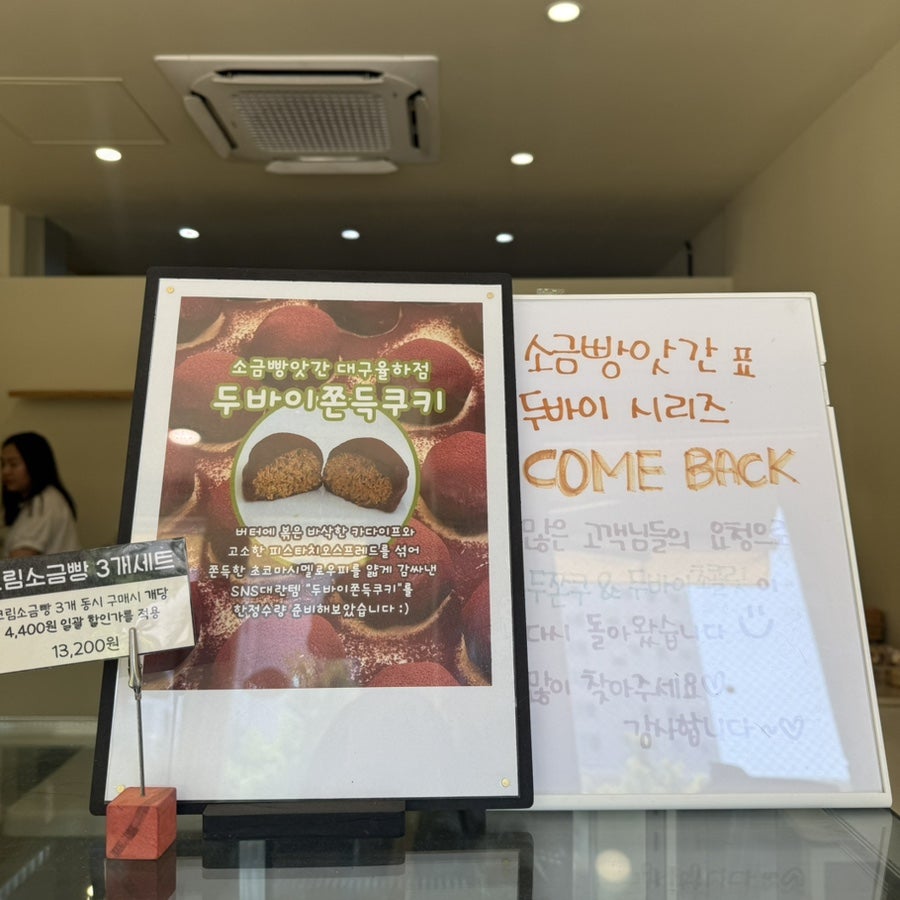 소금빵앗간 대구율하점
두바이쫀득쿠키
버터에 볶은 바삭한 카다이프와
고소한 피스타치오스프레드를 섞어
쫀득한 초코마시멜로우피를 얇게 감싸낸
SNS대란템 "두바이쫀득쿠키"를
한정수량 준비해보았습니다 :)
크림소금빵 3개세트
크림소금빵 3개 동시 구매시 개당
4,400원 일괄 할인가를 적용
13,200원
소금빵앗간 표
두바이 시리즈
COME BACK
많은 고객님들의 요청으로
두쫀쿠 &
다시 돌아왔습니다
많이 찾아주세요♡
감사합니다~♡